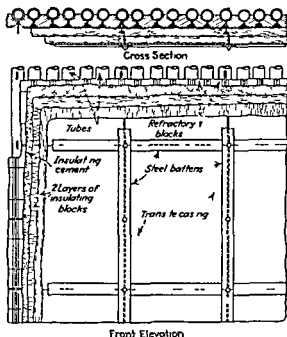 Cross Section
Tubes
Refractory
blocks
Insulating
cement
Steel battens
2 Layers of
insulating
blocks
casing
Front Elevation